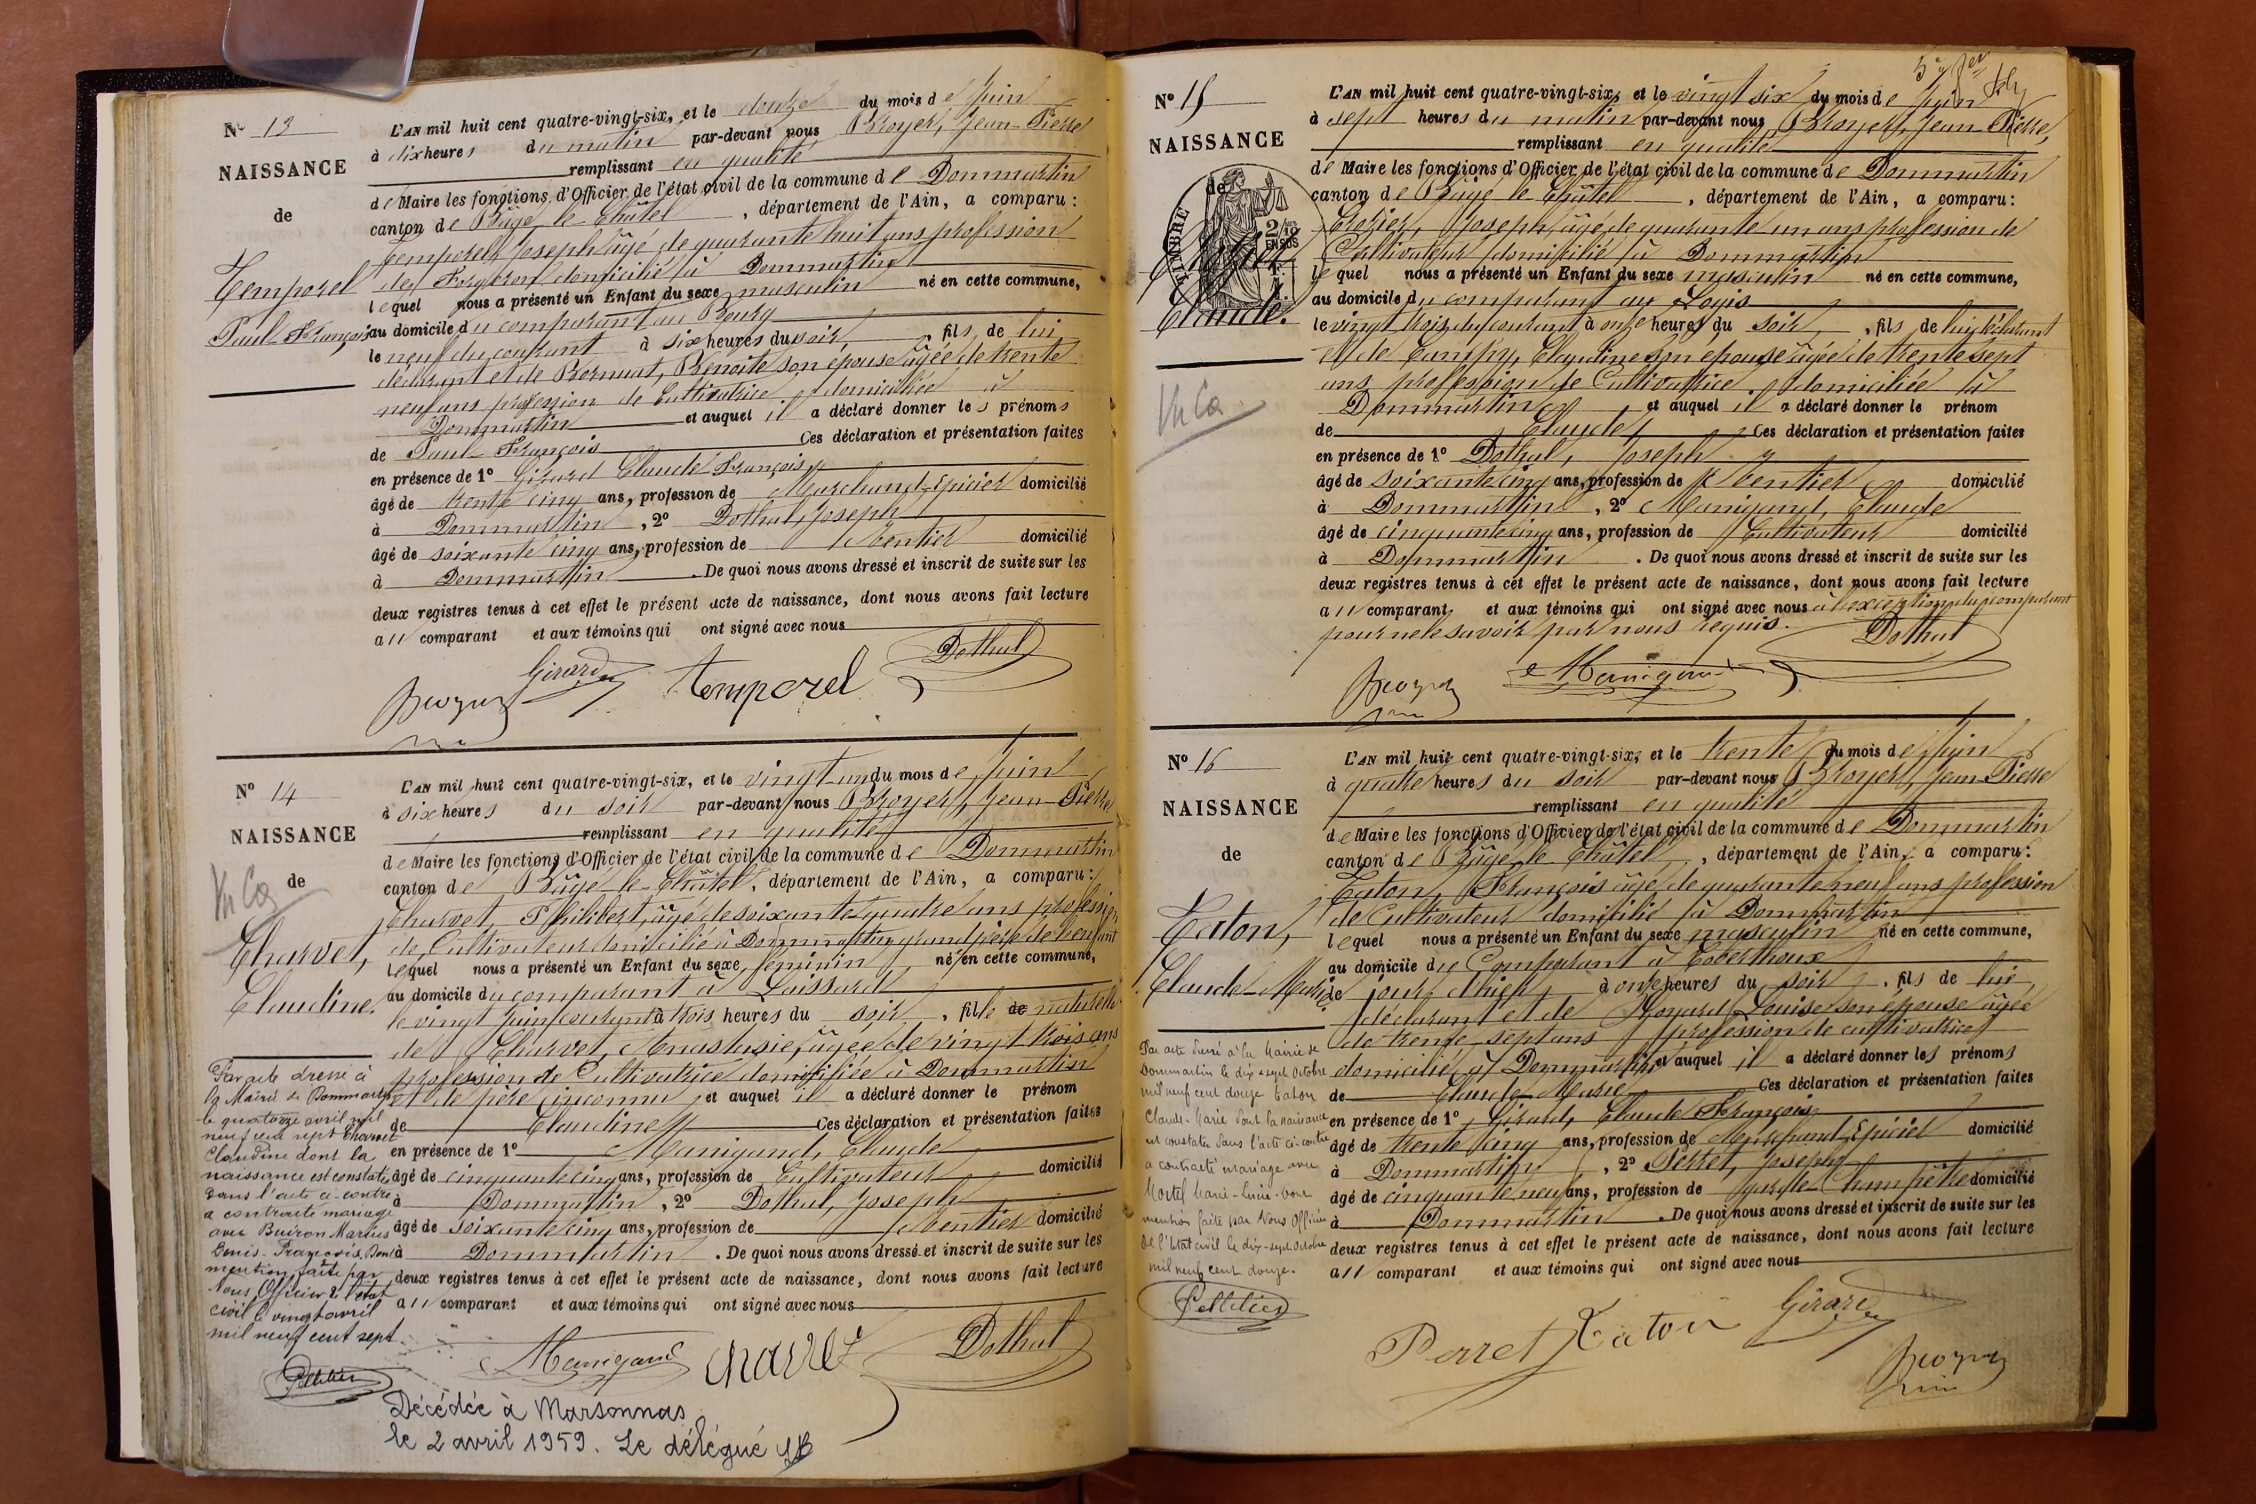 N° 13
NAISSANCE
de
Temporel
Paul-François
L'AN mil huit cent quatre-vingt-six, et le douze du mois de Juin
à dix heures du matin par-devant nous Broyer, Jean-Pierre
remplissant en qualité
de Maire les fonctions d'Officier de l'état civil de la commune de Dommartin
canton de Bâgé-le-Châtel, département de l'Ain, a comparu :
Temporel Joseph âgé de quarante huit ans profession
de Forgeron domicilié à Dommartin
lequel nous a présenté un Enfant du sexe masculin né en cette commune,
au domicile du comparant au Bourg
le neuf du courant à six heures du soir, fils de lui
déclarant et de Bernuat, Benoite son épouse âgée de trente
neuf ans profession de Cultivatrice domiciliée à
Dommartin et auquel il a déclaré donner les prénoms
de Paul-François Ces déclaration et présentation faites
en présence de 1° Girard Claude François
âgé de trente cinq ans, profession de Marchand-Epicier domicilié
à Dommartin, 2° Dothal, Joseph
âgé de soixante cinq ans, profession de Rentier domicilié
à Dommartin. De quoi nous avons dressé et inscrit de suite sur les
deux registres tenus à cet effet le présent acte de naissance, dont nous avons fait lecture
au comparant et aux témoins qui ont signé avec nous
Girard temporel Dothal
Broyer
N° 14
NAISSANCE
de
Charvet,
Claudine.
L'AN mil huit cent quatre-vingt-six, et le vingt un du mois de Juin
à six heures du soir par-devant nous Broyer, Jean-Pierre
remplissant en qualité
de Maire les fonctions d'Officier de l'état civil de la commune de Dommartin
canton de Bâgé-le-Châtel, département de l'Ain, a comparu :
Charvet, Philibert, âgé de soixante quatre ans profession
de Cultivateur domicilié à Dommartin grand père de l'enfant
lequel nous a présenté un Enfant du sexe féminin né en cette commune,
au domicile du comparant à Loissard
le vingt juin courant à trois heures du soir, fille de naturelle
de Charvet, Anastasie, âgée de vingt trois ans
profession de Cultivatrice domiciliée à Dommartin
et de père inconnu et auquel il a déclaré donner le prénom
de Claudine Ces déclaration et présentation faites
en présence de 1° Manigand, Claude
âgé de cinquante cinq ans, profession de Cultivateur domicilié
à Dommartin, 2° Dothal, Joseph
âgé de soixante cinq ans, profession de Rentier domicilié
à Dommartin. De quoi nous avons dressé et inscrit de suite sur les
deux registres tenus à cet effet le présent acte de naissance, dont nous avons fait lecture
au comparant et aux témoins qui ont signé avec nous
Manigand Charvet Dothal
Par acte dressé à
la Mairie de Dommartin
le quatorze avril mil
neuf cent sept Charvet
Claudine dont la
naissance est constatée
dans l'acte ci-contre
a contracté mariage
avec Buiron Marius
Louis-François. Dont
mention faite par
Nous, Officier de l'état
civil le vingt avril
mil neuf cent sept.
Pelletier
Décédée à Marsonnas
le 2 avril 1959. Le délégué
N° 15
NAISSANCE
de
TIMBRE
2/10 EN SUS
Claude.
L'AN mil huit cent quatre-vingt-six, et le vingt six du mois de Juin
à sept heures du matin par-devant nous Broyer, Jean-Pierre,
remplissant en qualité
de Maire les fonctions d'Officier de l'état civil de la commune de Dommartin
canton de Bâgé-le-Châtel, département de l'Ain, a comparu :
Joseph, âgé de quarante un ans profession de
Cultivateur domicilié à Dommartin
lequel nous a présenté un Enfant du sexe masculin né en cette commune,
au domicile du comparant au Logis
le vingt trois du courant à onze heures du soir, fils de lui déclarant
et de Claudine son épouse âgée de trente sept
ans profession de Cultivatrice domiciliée à
Dommartin et auquel il a déclaré donner le prénom
de Claude, Ces déclaration et présentation faites
en présence de 1° Dothal, Joseph
âgé de soixante cinq ans, profession de Rentier domicilié
à Dommartin, 2° Manigand, Claude
âgé de cinquante cinq ans, profession de Cultivateur domicilié
à Dommartin. De quoi nous avons dressé et inscrit de suite sur les
deux registres tenus à cet effet le présent acte de naissance, dont nous avons fait lecture
au comparant et aux témoins qui ont signé avec nous à l'exception du comparant
pour ne le savoir par nous requis.
Dothal
Broyer Manigand
N° 16
NAISSANCE
de
Caton,
Claude-Marie
L'AN mil huit cent quatre-vingt-six, et le trente du mois de Juin
à quatre heures du soir par-devant nous Broyer, Jean-Pierre
remplissant en qualité
de Maire les fonctions d'Officier de l'état civil de la commune de Dommartin
canton de Bâgé-le-Châtel, département de l'Ain, a comparu :
Caton, François âgé de quarante neuf ans profession
de Cultivateur domicilié à Dommartin
lequel nous a présenté un Enfant du sexe masculin né en cette commune,
au domicile du Comparant à Coberthoux
le jour d'hier, à onze heures du soir, fils de lui,
déclarant et de Louise son épouse âgée
de trente sept ans profession de cultivatrice
domiciliée à Dommartin, et auquel il a déclaré donner les prénoms
de Claude-Marie Ces déclaration et présentation faites
en présence de 1° Girard, Claude François
âgé de trente cinq ans, profession de Marchand Epicier domicilié
à Dommartin, 2° Perret, Joseph
âgé de cinquante neuf ans, profession de garde-Champêtre domicilié
à Dommartin. De quoi nous avons dressé et inscrit de suite sur les
deux registres tenus à cet effet le présent acte de naissance, dont nous avons fait lecture
au comparant et aux témoins qui ont signé avec nous
Perret Caton Girard
Broyer
Par acte dressé à la Mairie de
Dommartin le dix-sept octobre
mil neuf cent douze Caton
Claude-Marie dont la naissance
est constatée dans l'acte ci-contre
a contracté mariage avec
Mortel Marie-Louise. Dont
mention faite par Nous Officier
de l'état civil le dix-sept octobre
mil neuf cent douze.
Pelletier